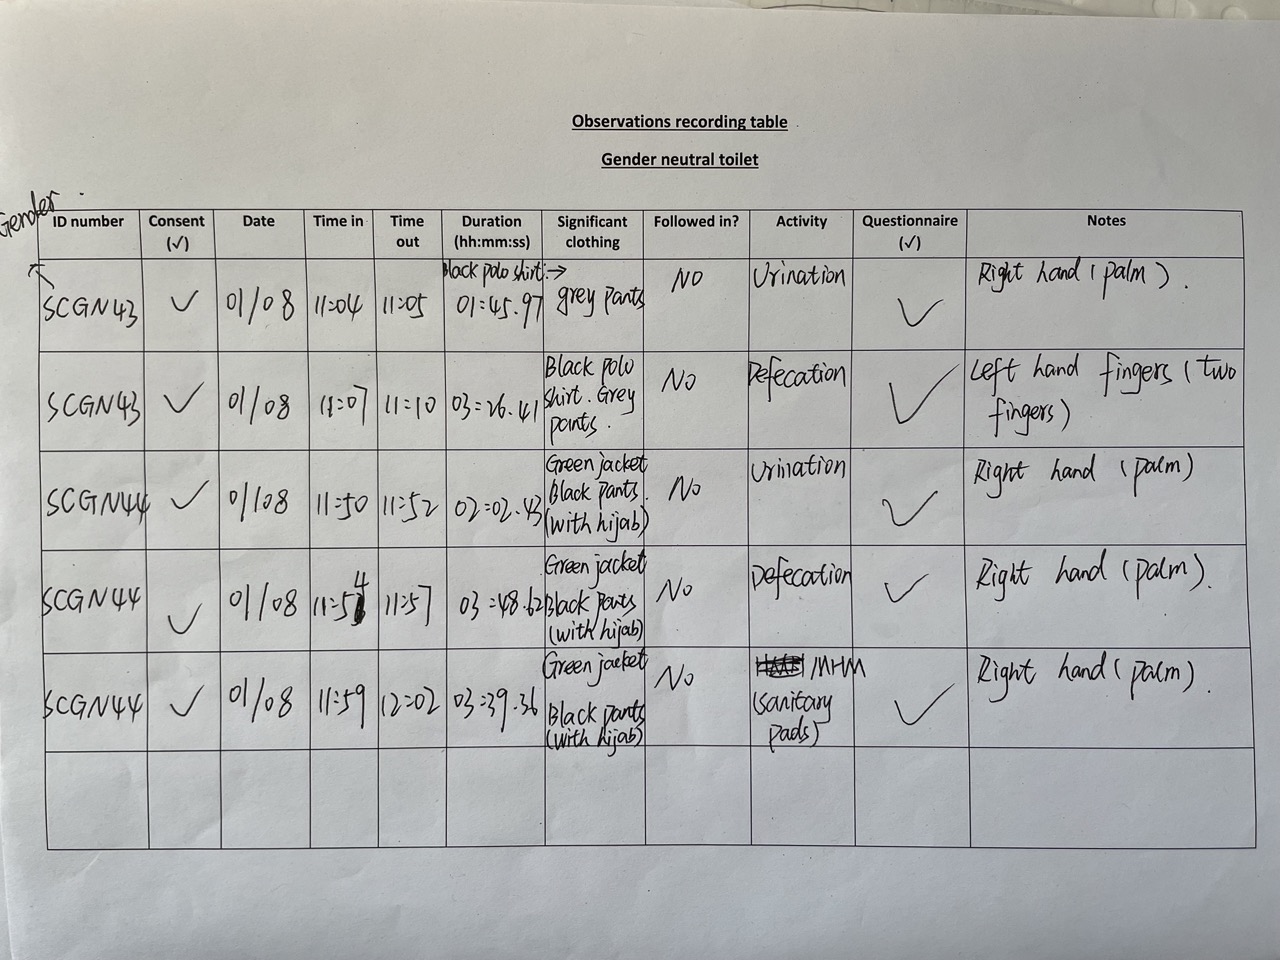 Observations recording table
Gender neutral toilet
Gender
ID number Consent (✓) Date Time in Time out Duration (hh:mm:ss) Significant clothing Followed in? Activity Questionnaire (✓) Notes
SCGN43 ✓ 01/08 11:04 11:05 01:45.97 Black polo shirt. → grey pants NO Urination ✓ Right hand (palm).
SCGN43 ✓ 01/08 11:07 11:10 03:26.41 Black polo shirt. Grey pants. No Defecation ✓ Left hand fingers (two fingers)
SCGN44 ✓ 01/08 11:50 11:52 02:02.43 Green jacket Black pants. (with hijab) No Urination ✓ Right hand (palm)
SCGN44 ✓ 01/08 11:54 11:57 03:48.62 Green jacket Black pants (with hijab) No Defecation ✓ Right hand (palm).
SCGN44 ✓ 01/08 11:59 12:02 03:39.36 Green jacket Black pants (with hijab) No MHM (sanitary pads) ✓ Right hand (palm).